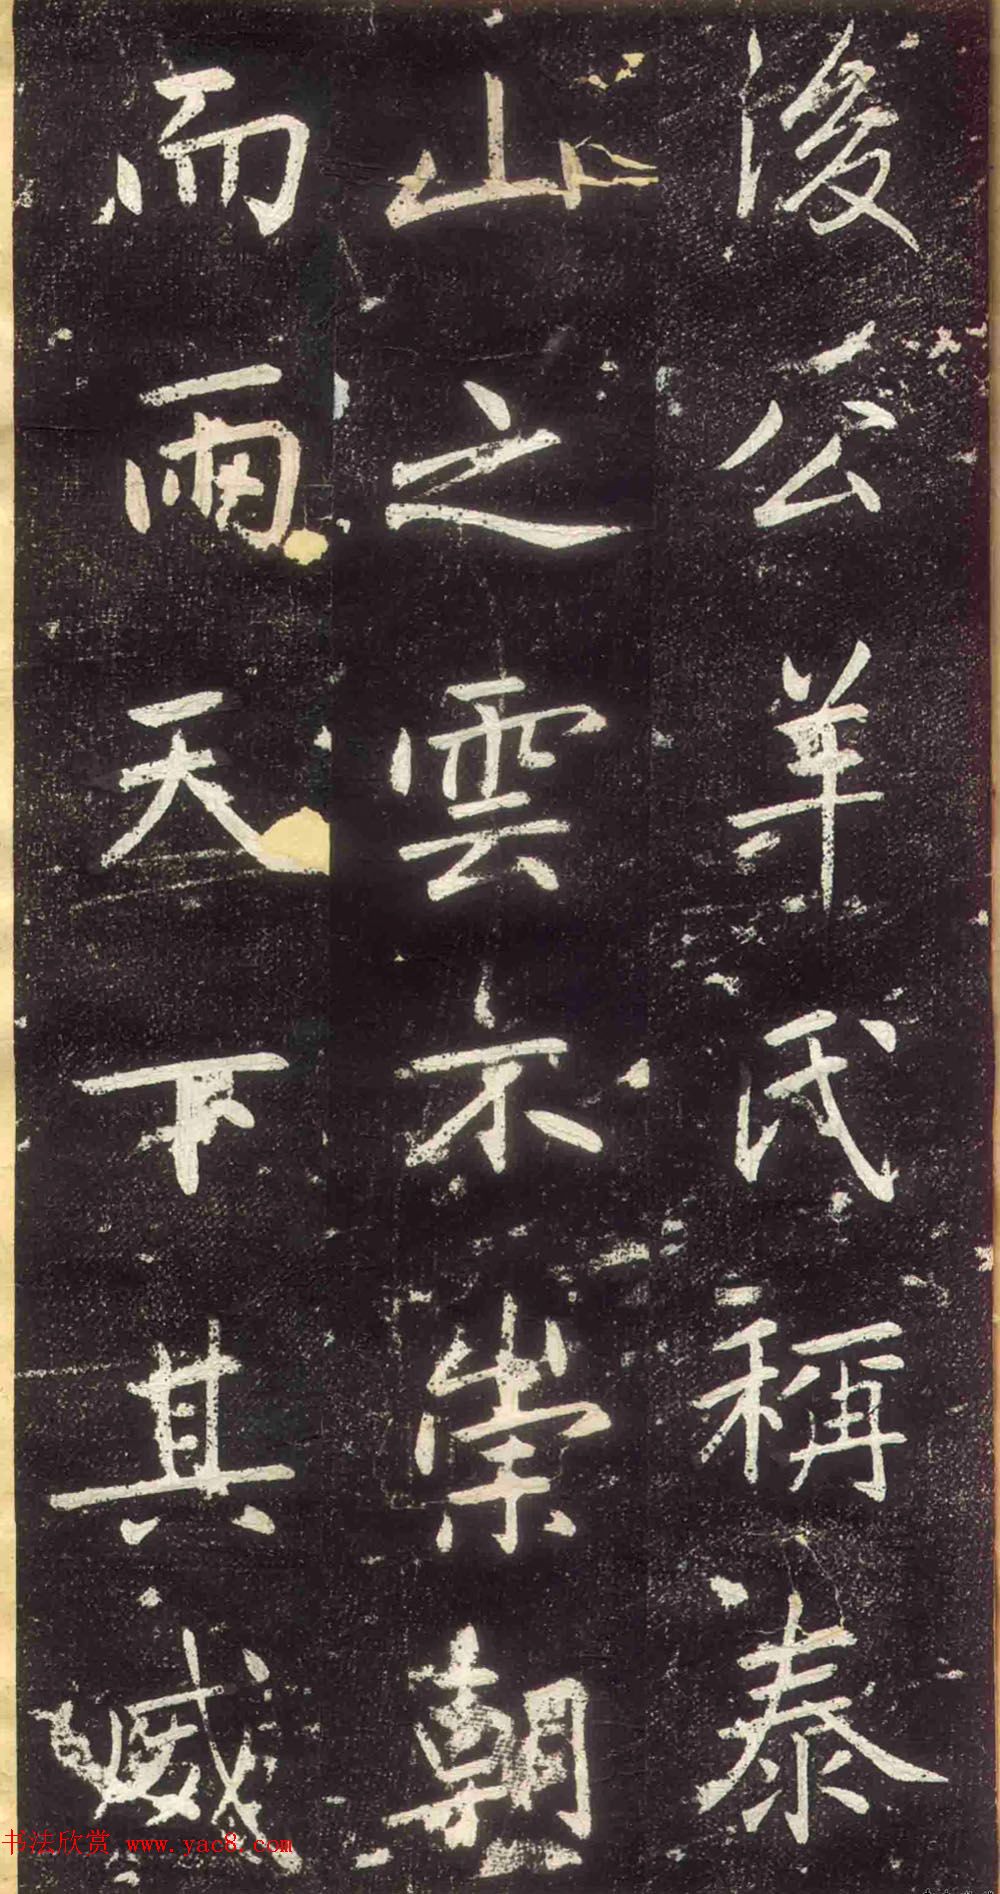 後公羊氏稱泰
山之雲不崇朝
而雨天下其
书法欣赏 www.yac8.com